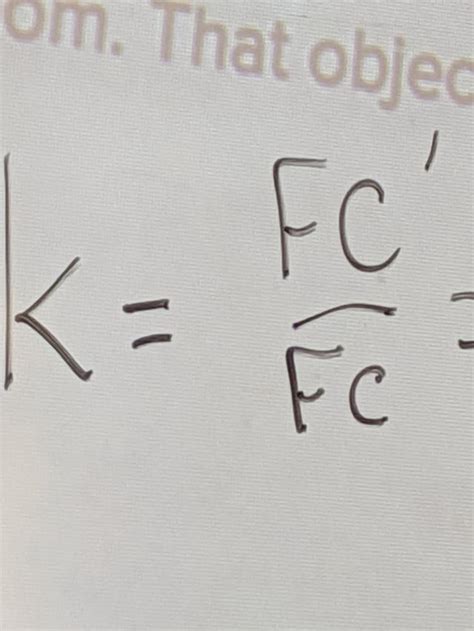 om. That objec
k = FC' =
FC